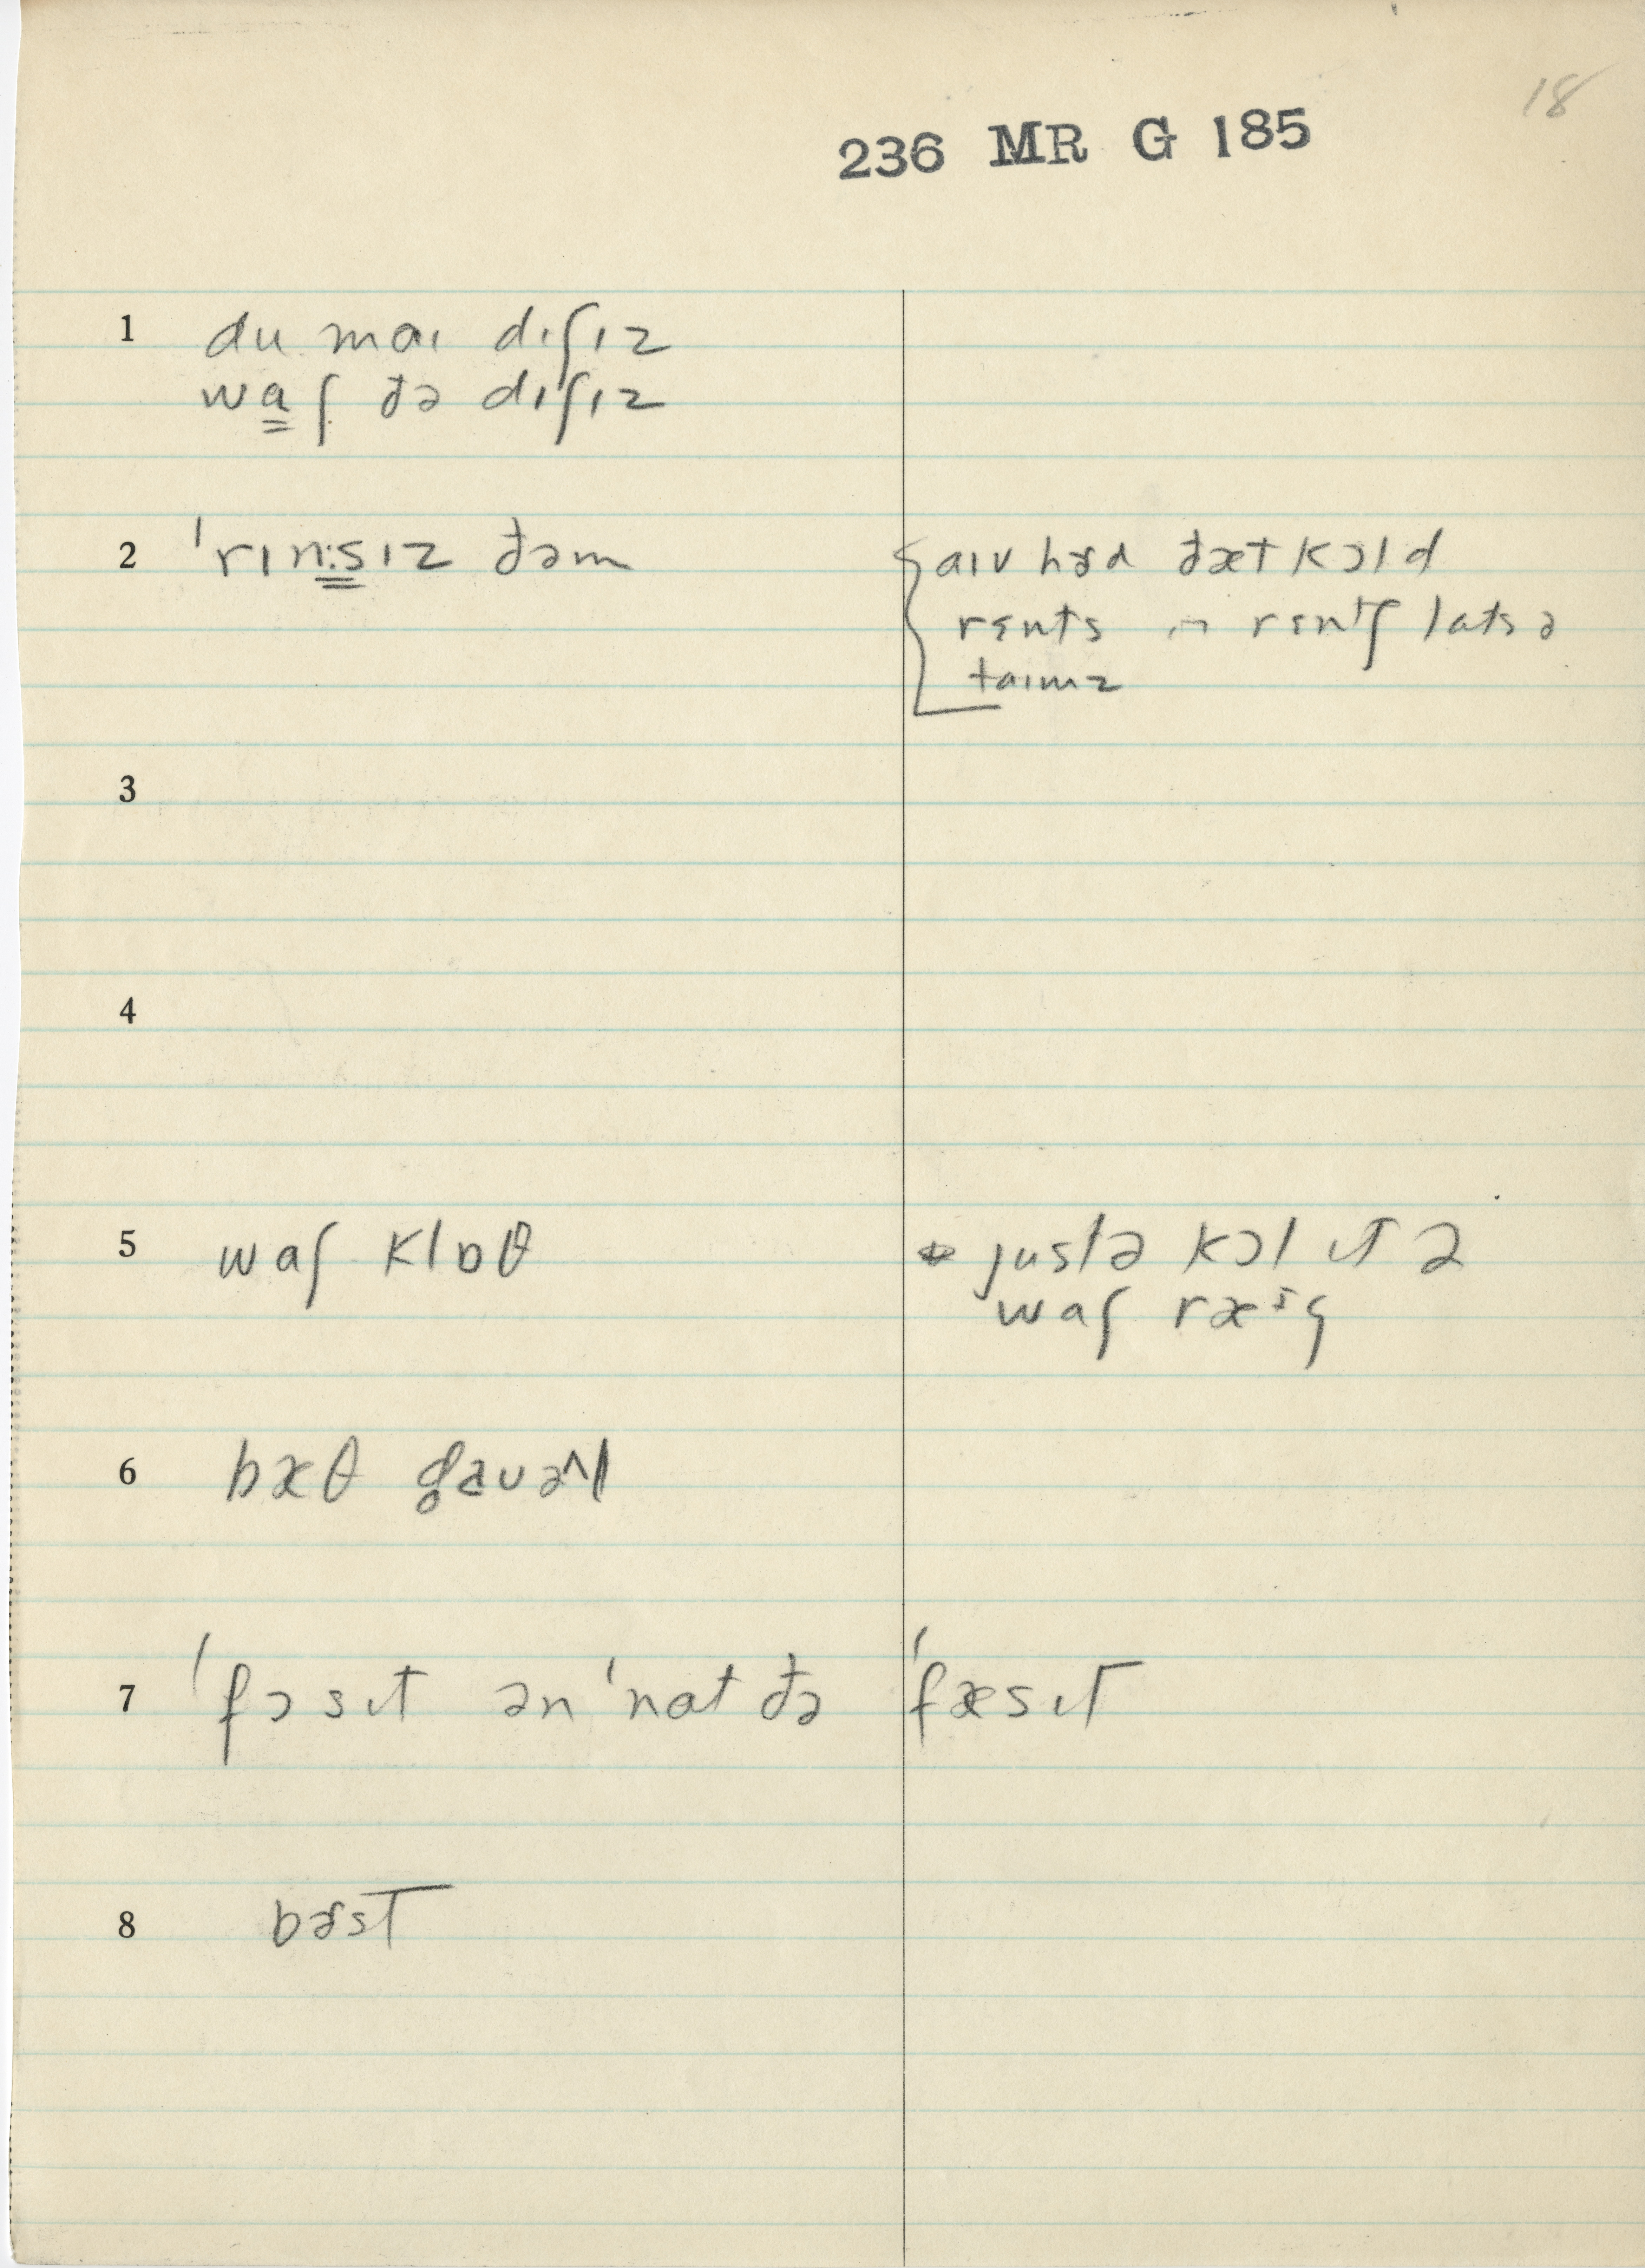 18
236 MR G 185
1 du maɪ dɪʃɪz
waʃ đə dɪʃɪz
2 ˈrɪn:sɪz đəm
aɪv hɝd đæt kɔld
rɛnts ɪn rɛntʃ latsə
taɪmz
3
4
5 waʃ klɒθ
justə kɔl ɪt ə
waʃ ræᵋg
6 bæθ
7 ˈfɔsɪt ən ˈnat đə ˈfæsɪt
8 bɝst